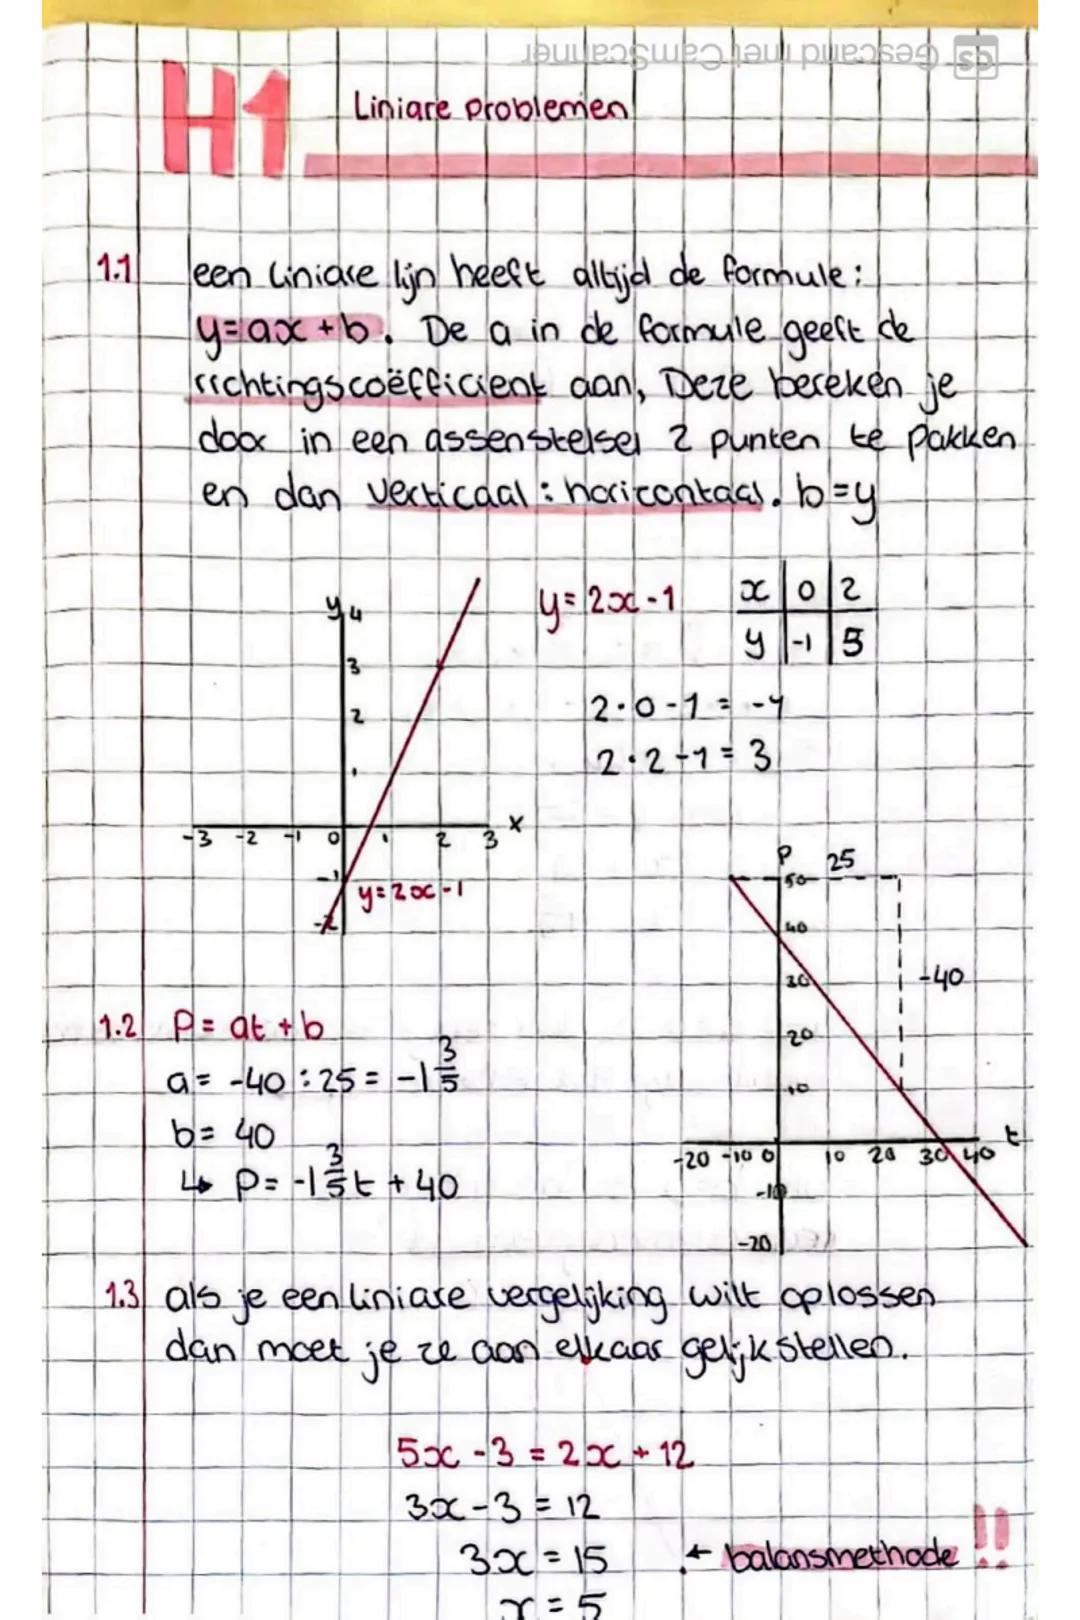 Gescand met CamScanner
H1 Liniare problemen
1.1 een liniare lijn heeft altijd de formule:
y=ax+b. De a in de formule geeft de
richtingscoëfficient aan, Deze bereken je
door in een assenstelsel 2 punten te pakken
en dan verticaal : horicontaal. b=y
y=2x-1
x 0 2
y -1 5
2·0-1=-1
2·2-1=3
y 4
3
2
-3 -2 -1 0 1 2 3 x
-1
y=2x-1
-2
P 25
50
40
30 -40
20
10
-20 -10 0 10 20 30 40 t
-10
-20
1.2 P=at+b
a= -40:25= -1 3/5
b= 40
↳ P= -1 3/5 t + 40
1.3 als je een liniare vergelijking wilt oplossen
dan moet je ze aan elkaar gelijkstellen.
5x-3=2x+12
3x-3=12
3x=15 ← balansmethode !!
x=5